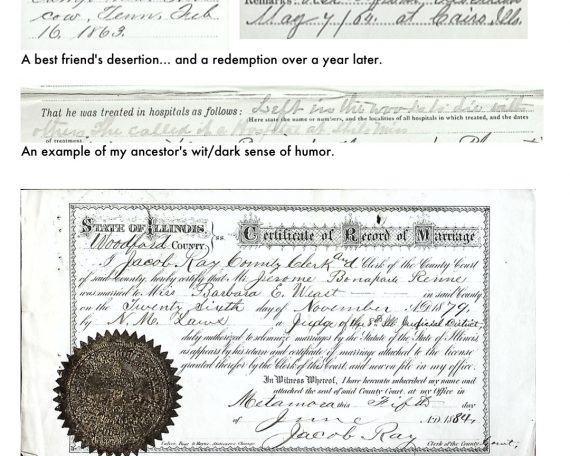 cow, Tenn, Feb
16, 1863.
Remarks:
May 7/64. at Cairo, Ills.
A best friend's desertion... and a redemption over a year later.
That he was treated in hospitals as follows: Left in the woods to die with
Here state the name or numbers, and the localities of all hospitals in which treated, and the dates
others. The called of a Hospital at
of treatment.
An example of my ancestor's wit/dark sense of humor.
State of Illinois, ss. Certificate of Record of Marriage
Woodford County
I Jacob Ray County Clerk and Clerk of the County Court
of said County, hereby certify that Mr Jerome Bonaparte Renne
was married to Miss Barbara E. Weast in said County
on the Twenty Sixth day of November A.D. 1879,
by N. M. Laws a Judge of the 8th Ill Judicial District,
duly authorized to solemnize marriages by the Statute of the State of Illinois
as appears by his return and certificate of marriage attached to the license
granted therefor by the Clerk of this Court, and now on file in my office.
In Witness Whereof, I have hereunto subscribed my name and
attached the seal of said County Court, at my Office in
Metamora this Fifth day
of June A.D. 1884,
Jacob Ray Clerk of the County Court,